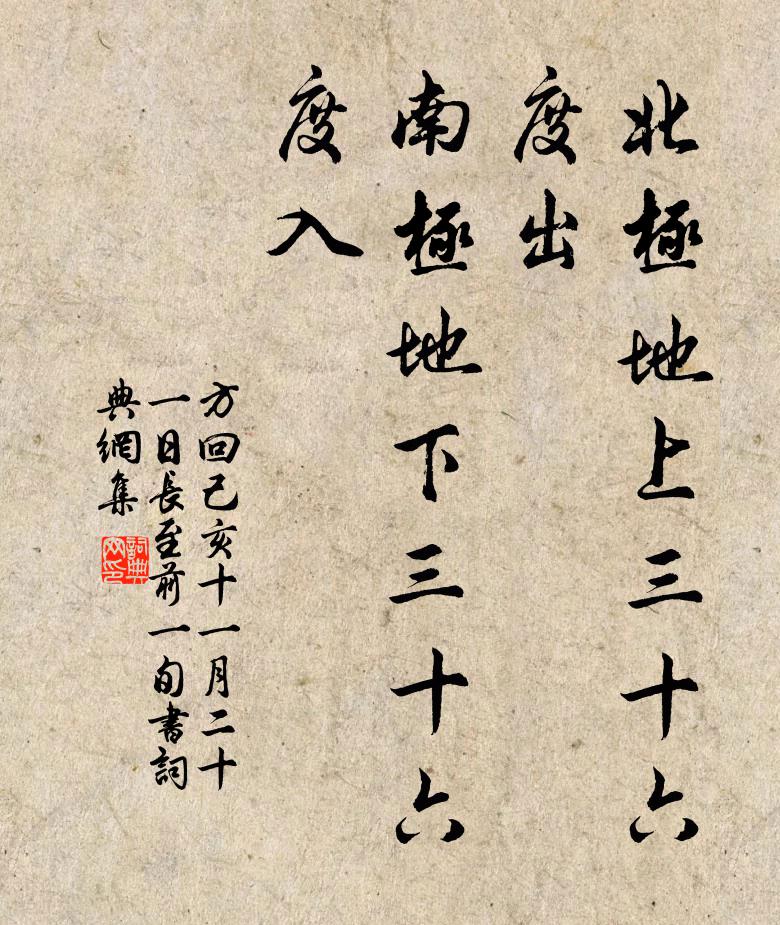 北極地上三十六
度出
南極地下三十六
度入
方回己亥十一月二十
一日長至前一旬書詞
典網集
詞典網印